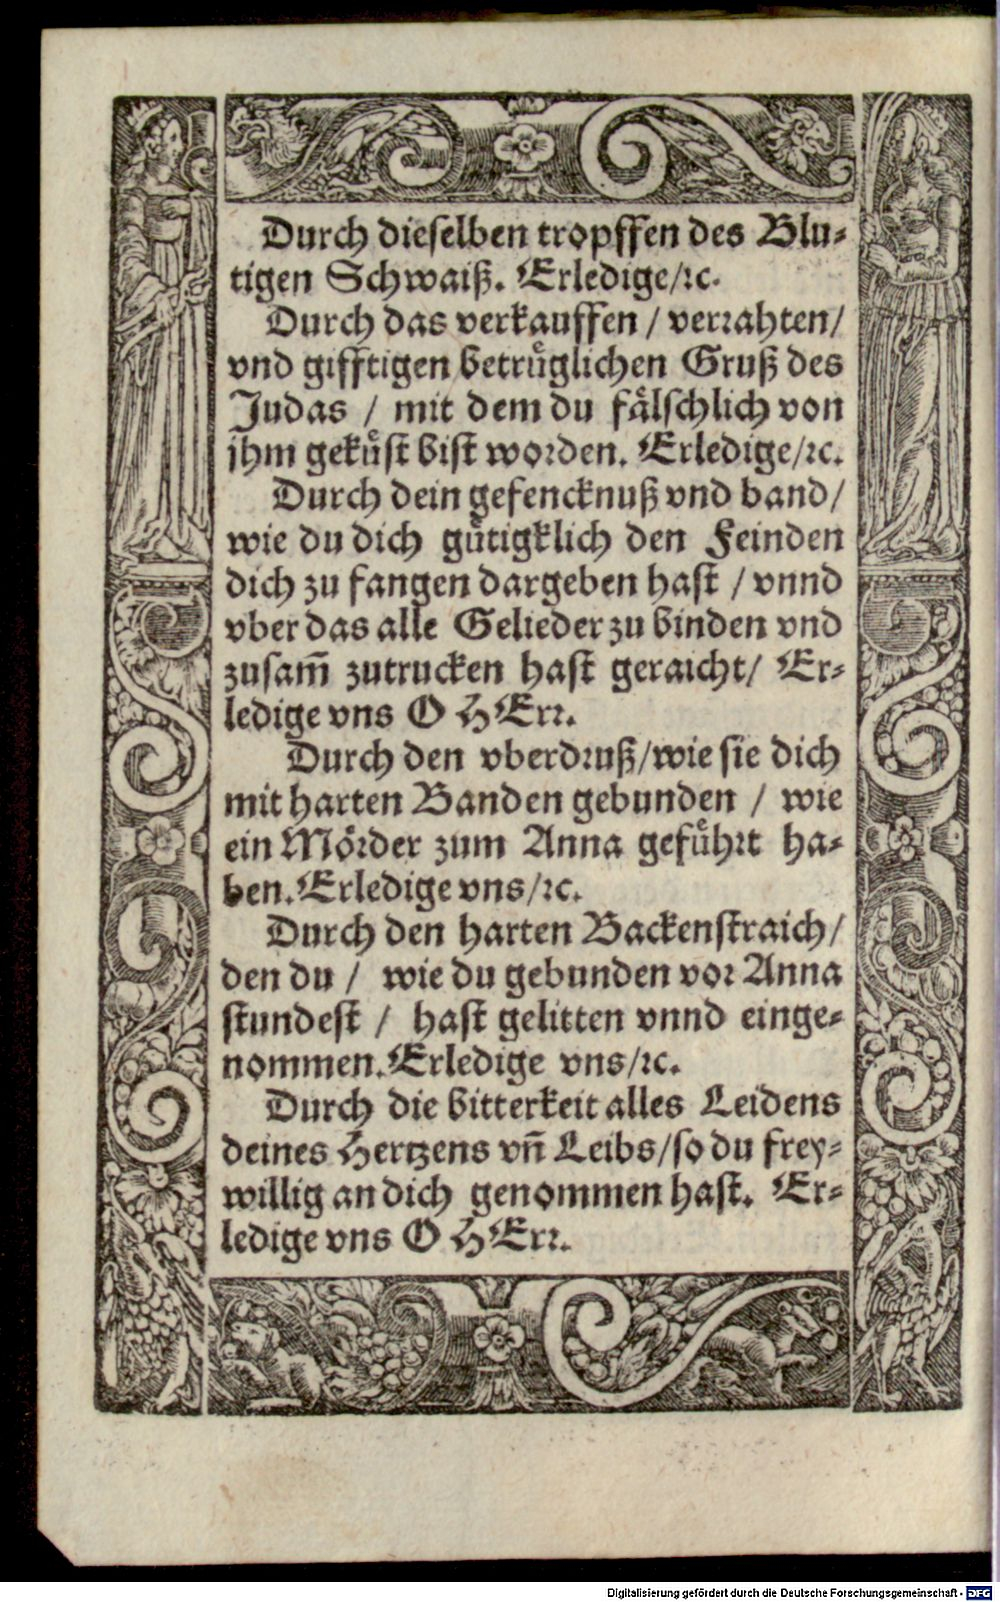 Durch dieselben tropffen des Blu-
tigen Schwaiß. Erledige/ꝛc.
Durch das verkauffen / verrahten/
vnd gifftigen betruͤglichen Gruß des
Judas / mit dem du faͤlschlich von
jhm gekuͤst bist worden. Erledige/ꝛc.
Durch dein gefencknuß vnd band/
wie du dich guͤtigklich den Feinden
dich zu fangen dargeben hast / vnnd
vber das alle Gelieder zu binden vnd
zusam̃ zutrucken hast geraicht/ Er-
ledige vns O HErr.
Durch den vberdruß/wie sie dich
mit harten Banden gebunden / wie
ein Moͤrder zum Anna gefuͤhrt ha-
ben. Erledige vns/ꝛc.
Durch den harten Backenstraich/
den du / wie du gebunden vor Anna
stundest / hast gelitten vnnd einge-
nommen. Erledige vns/ꝛc.
Durch die bitterkeit alles Leidens
deines Hertzens vñ Leibs/so du frey-
willig an dich genommen hast. Er-
ledige vns O HErr.
Digitalisierung gefördert durch die Deutsche Forschungsgemeinschaft - DFG